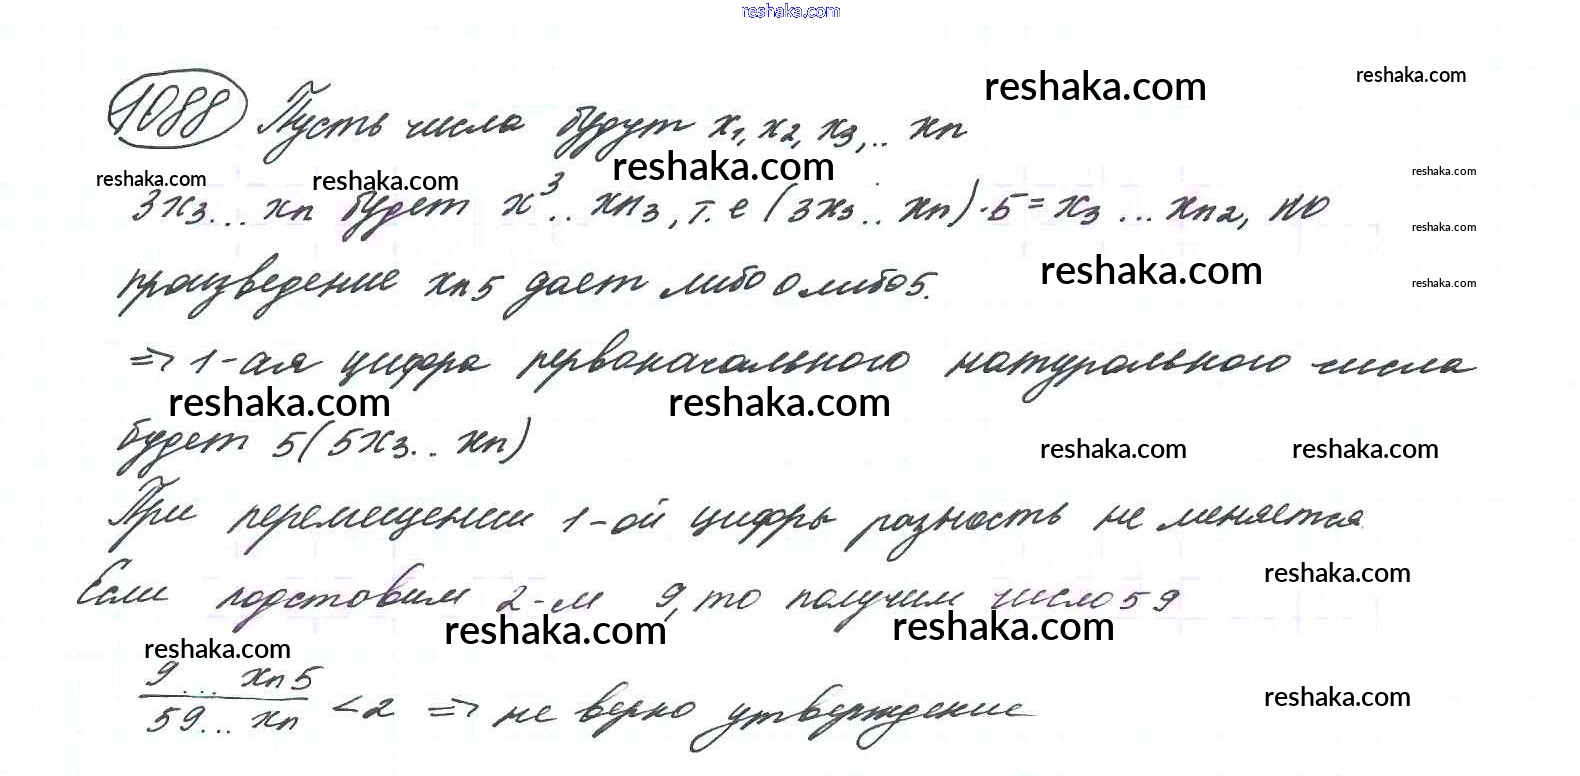 reshaka.com
1088 Пусть числа будут x1, x2, x3,.. xn
reshaka.com reshaka.com
reshaka.com reshaka.com reshaka.com reshaka.com
3x3... xn будет x^3.. xn3, т.е (3x3.. xn)·5=x3 ... xn2, но
reshaka.com
произведение xn5 дает либо 0 либо 5.
reshaka.com reshaka.com
=> 1-ая цифра первоначального натурального числа
reshaka.com reshaka.com
будет 5(5x3... xn)
reshaka.com reshaka.com
При перемещении 1-ой цифры разность не меняется.
reshaka.com
Если подставим 2-м 9, то получим число 59
reshaka.com reshaka.com
reshaka.com
9... xn5
59... xn <2 => не верно утверждение
reshaka.com